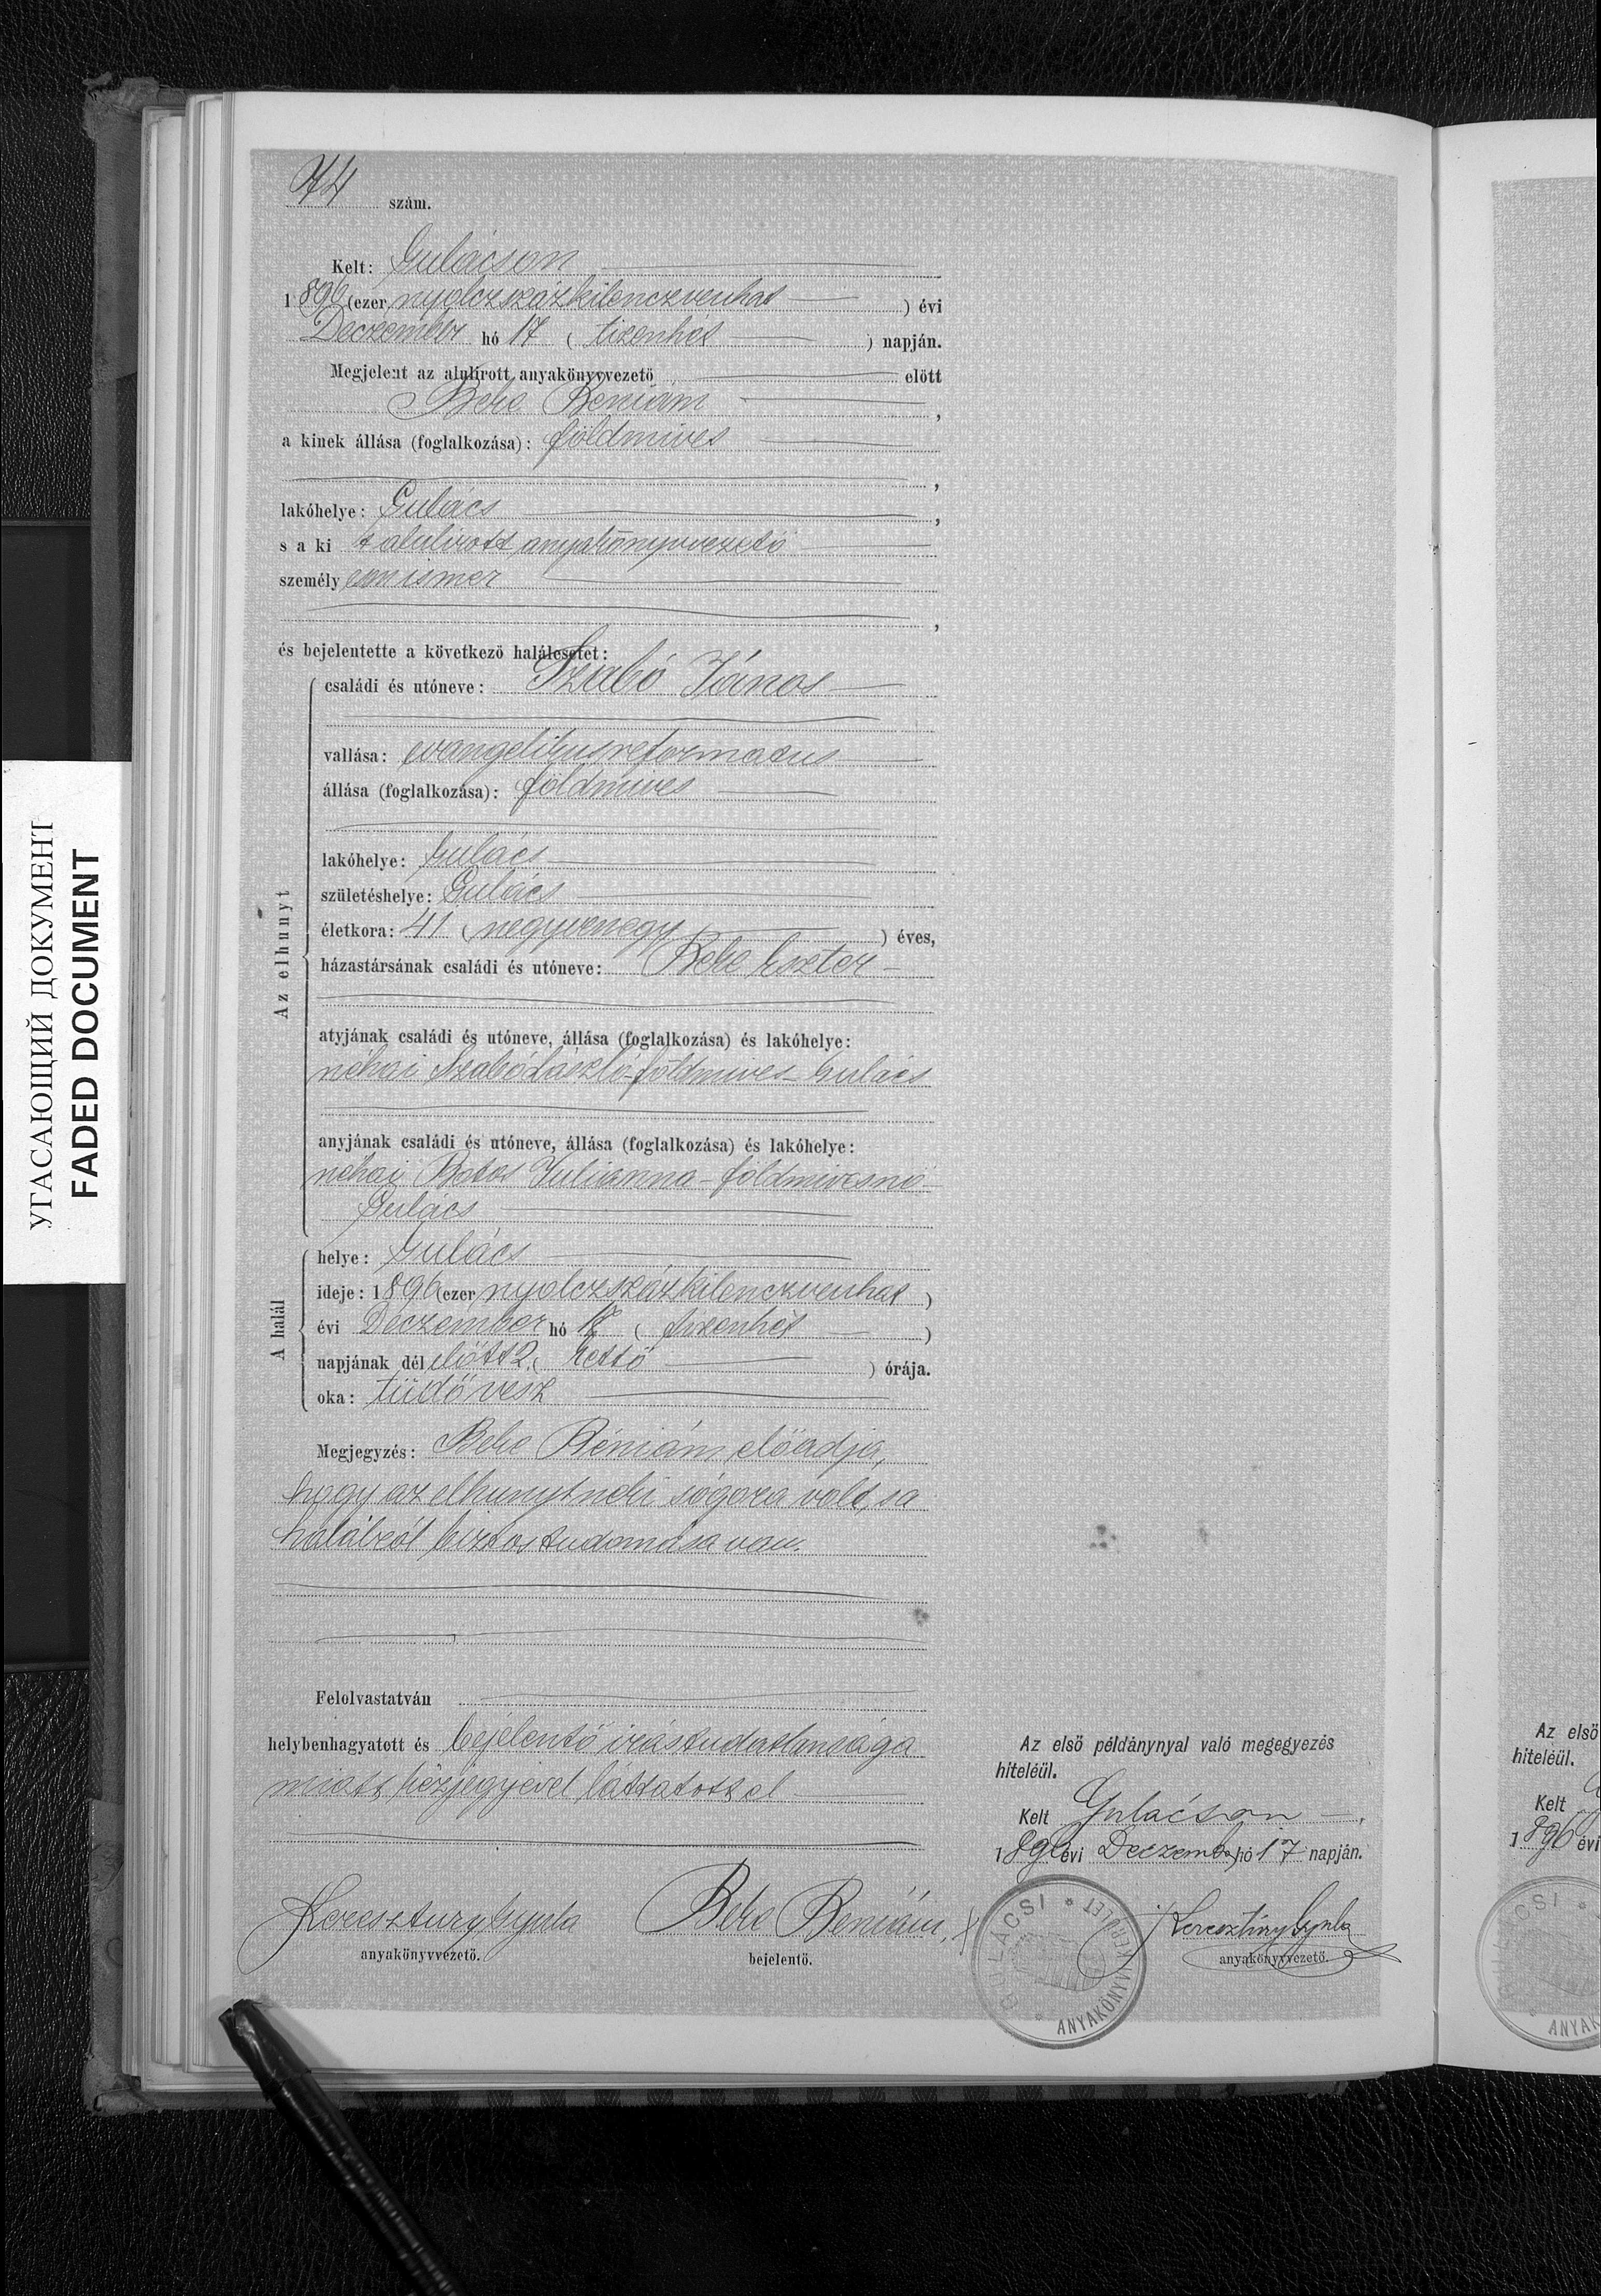 74 szám.
Kelt: Gulácson
1896 (ezer nyolczszázkilenczvenhat ) évi
Deczember hó 17 ( tizenhét ) napján.
Megjelent az alulírott anyakönyvvezető előtt
Beke Béniám ,
a kinek állása (foglalkozása): földmives
,
lakóhelye: Gulács ,
s a ki t alulirott anyakönyvvezető
személy esen ismer
,
és bejelentette a következő halálesetet:
családi és utóneve: Szabó János
vallása: evangelikus reformatus
állása (foglalkozása): földmives
lakóhelye: Gulács
születéshelye: Gulács
életkora: 41 ( negyvenegy ) éves,
házastársának családi és utóneve: Beke Eszter
Az elhunyt
atyjának családi és utóneve, állása (foglalkozása) és lakóhelye:
néhai Szabó László - földmives - Gulács
anyjának családi és utóneve, állása (foglalkozása) és lakóhelye:
néhai Botos Julianna - földmivesnő -
Gulács
helye: Gulács
ideje: 1896 (ezer nyolczszázkilenczvenhat )
évi Deczember hó 17 ( tizenhét )
A halál
napjának dél előtt 2 ( kettő ) órája.
oka: tüdővész
Megjegyzés: Beke Béniám előadja,
hogy az elhunyt neki sógora volt, s a
haláról biztos tudomása van.
Felolvastatván
helybenhagyatott és bejelentő irástudatlansága
miatt kézjegyével láttatott el
Keresztury Gyula Beke Béniám, X
anyakönyvvezető. bejelentő.
Az első példánynyal való megegyezés
hiteléül.
Kelt Gulácson ,
1896 évi Deczemb. hó 17 napján.
Keresztúry Gyula
anyakönyvvezető.
GULÁCSI * ANYAKÖNYVI KERÜLET *
УГАСАЮЩИЙ ДОКУМЕНТ
FADED DOCUMENT
Az első
hiteléül.
Kelt
1896 évi